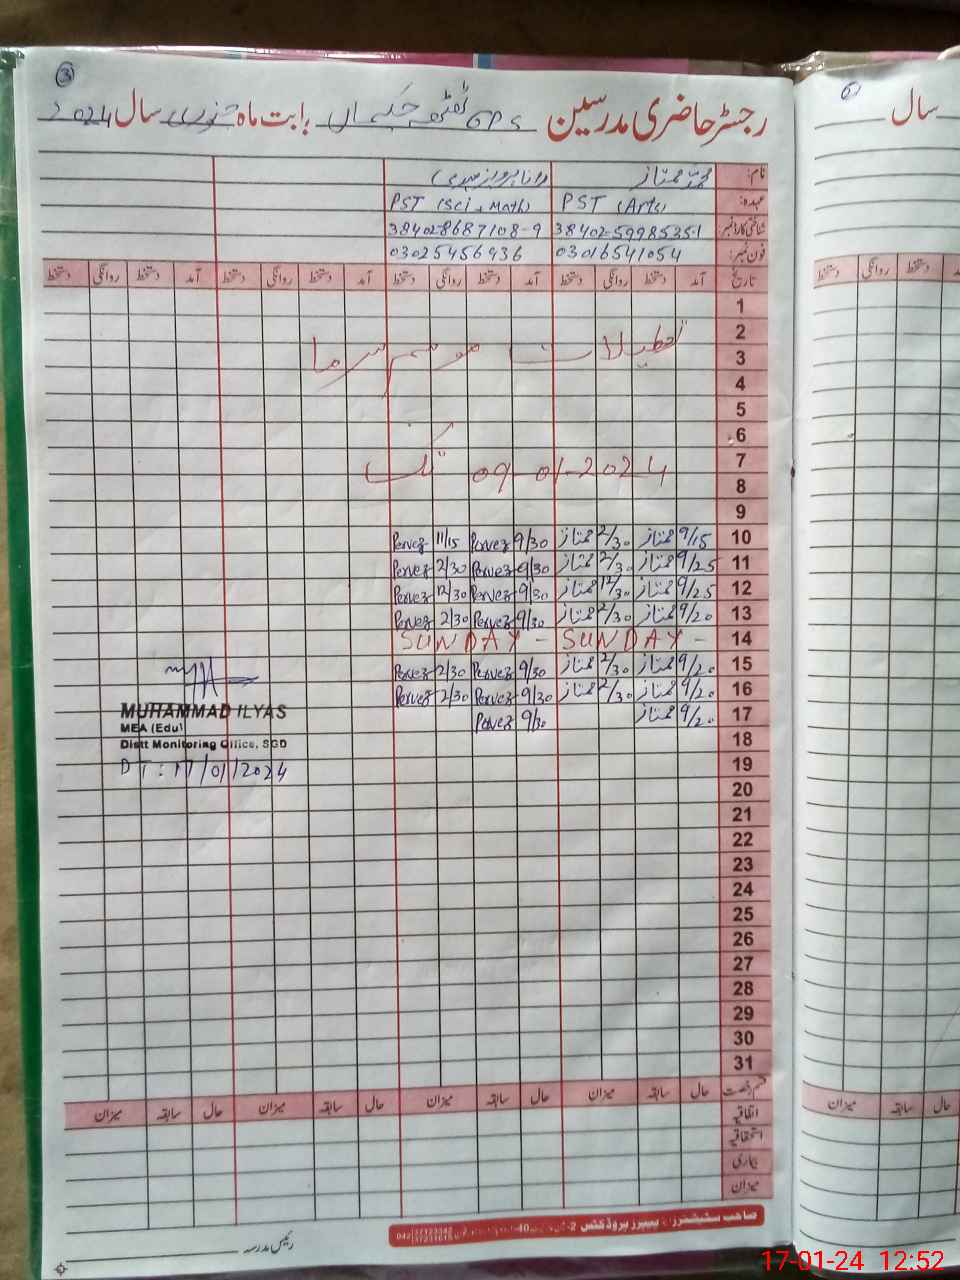 3
رجسٹر حاضری مدرسین GPS بابت ماہ جنوری سال 2024
نام: محمد ممتاز
عہدہ: PST (Arts) PST (Sci + Math)
شناختی کارڈ نمبر: 38402-5998535-1 38402-8687108-9
فون نمبر: 03016541054 03025456936
تاریخ آمد دستخط روانگی دستخط آمد دستخط روانگی دستخط آمد دستخط روانگی دستخط آمد دستخط روانگی دستخط
1
2
تعطیلات موسم سرما
3
4
5
6
7
09-01-2024 تک
8
9
10 9/15 ممتاز 2/30 ممتاز 9/30 Pervez 11/15 Pervez
11 9/25 ممتاز 2/30 ممتاز 9/30 Pervez 2/30 Pervez
12 9/25 ممتاز 12/30 ممتاز 9/30 Pervez 12/30 Pervez
13 9/20 ممتاز 2/30 ممتاز 9/30 Pervez 2/30 Pervez
14 SUNDAY - SUNDAY -
15 9/20 ممتاز 2/30 ممتاز 9/30 Pervez 2/30 Pervez
16 9/20 ممتاز 2/30 ممتاز 9/30 Pervez 2/30 Pervez
17 9/20 ممتاز 9/30 Pervez
MUHAMMAD ILYAS
MEA (Edu)
Distt Monitoring Office, SGD
DT: 17/01/2024
18
19
20
21
22
23
24
25
26
27
28
29
30
31
قسم رخصت حال سابقہ میزان حال سابقہ میزان حال سابقہ میزان حال سابقہ میزان
اتفاقیہ
استحقاقیہ
بیماری
میزان
رئیس مدرسہ
سال
دستخط روانگی دستخط
حال سابقہ میزان
17-01-24 12:52